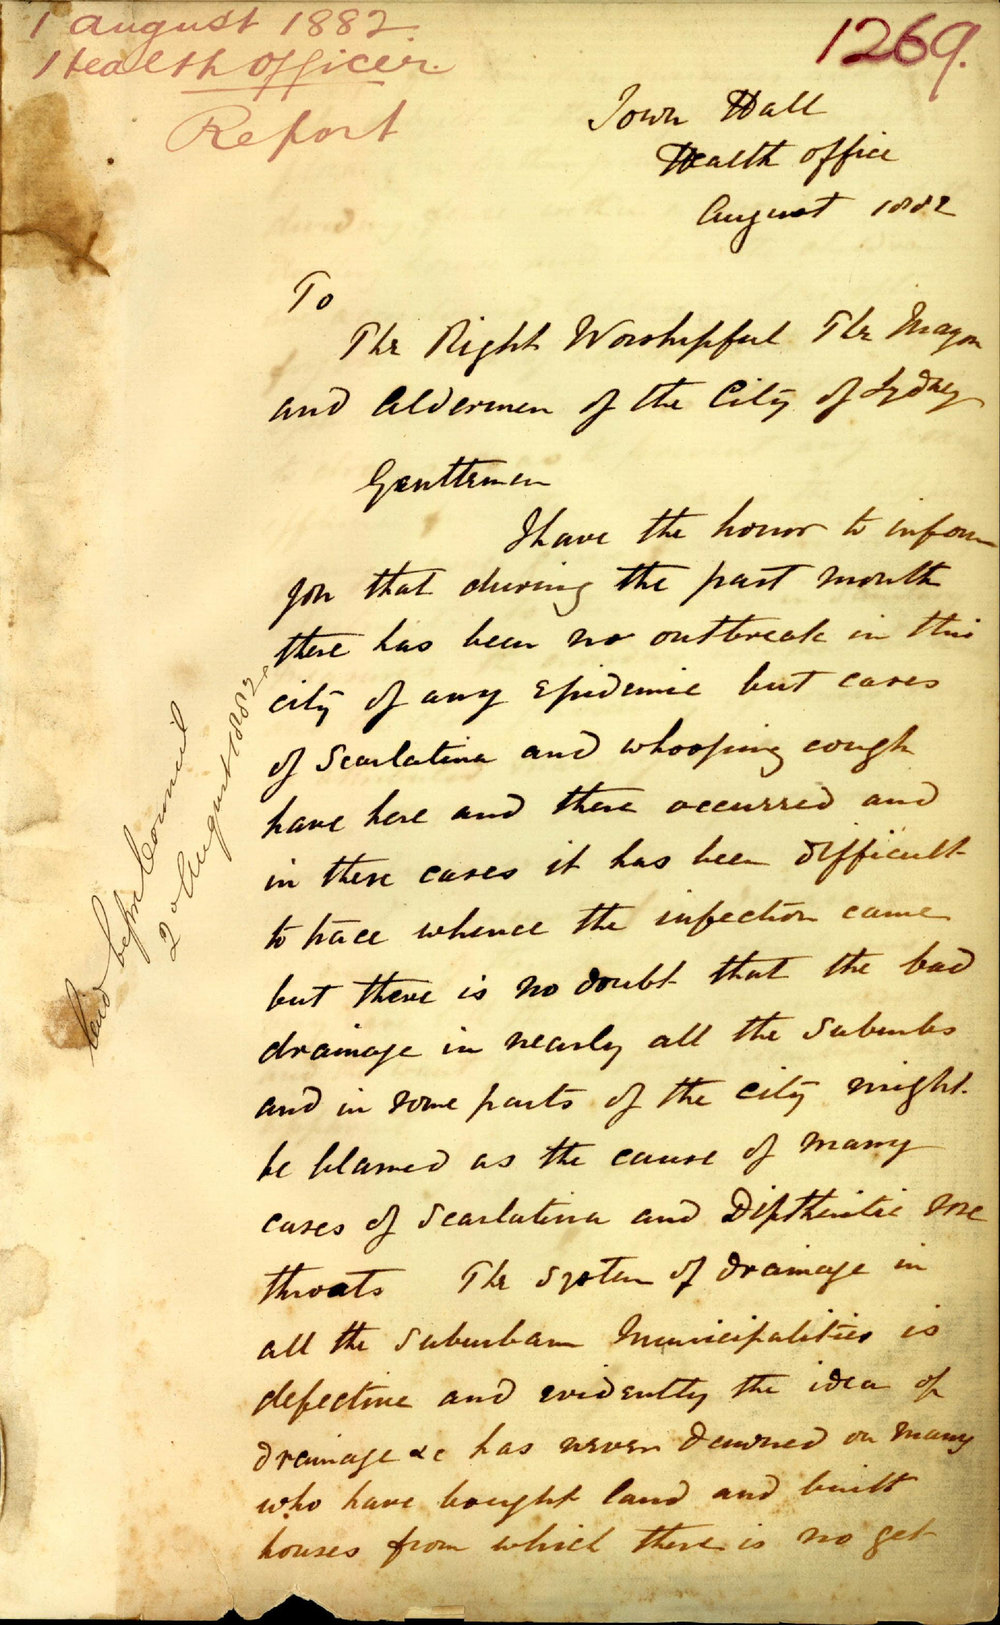 1 August 1882.
Health Officer.
Report
1269.
Town Hall
Health Office
August 1882
To
The Right Worshipful The Mayor
and Aldermen of the City of Sydney
Gentlemen
I have the honor to inform
you that during the past month
there has been no outbreak in this
city of any Epidemic but cases
of Scarlatina and whooping cough
have here and there occurred and
in these cases it has been difficult
to trace whence the infection came
but there is no doubt that the bad
drainage in nearly all the Suburbs
and in some parts of the City might
be blamed as the cause of many
cases of Scarlatina and Diptheritic sore
throats The System of drainage in
all the Suburban Municipalities is
defective and evidently the idea of
drainage &c has never dawned on many
who have bought land and built
houses from which there is no get
Laid before Council
2 August 1882.